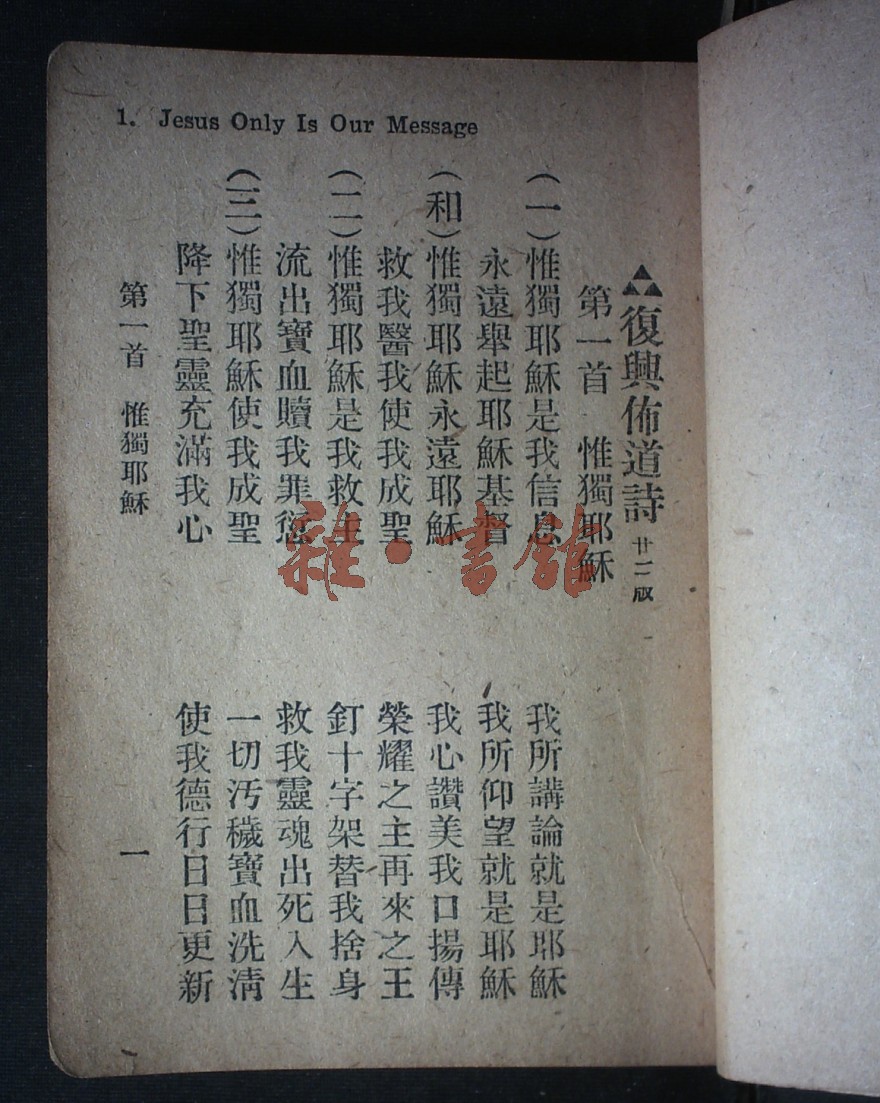 1. Jesus Only Is Our Message
復興佈道詩 廿二版
第一首 惟獨耶穌
(一)惟獨耶穌是我信息 我所講論就是耶穌
永遠舉起耶穌基督 我所仰望就是耶穌
(和)惟獨耶穌永遠耶穌 我心讚美我口揚傳
救我醫我使我成聖 榮耀之主再來之王
(二)惟獨耶穌是我救主 釘十字架替我捨身
流出寶血贖我罪愆 救我靈魂出死入生
(三)惟獨耶穌使我成聖 一切汚穢寶血洗淸
降下聖靈充滿我心 使我德行日日更新
第一首 惟獨耶穌 一
雜·書館